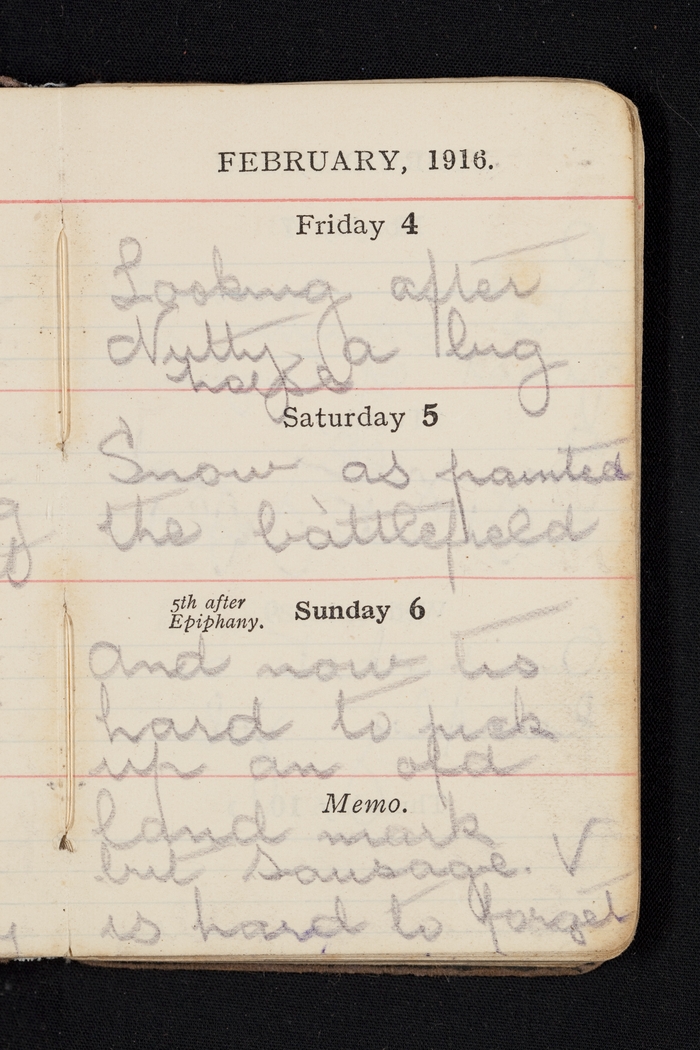 FEBRUARY, 1916.
Friday 4
Looking after
Nutty a lug
Saturday 5
Snow as painted
the battlefield
5th after
Epiphany.
Sunday 6
and now tis
hard to pick
up an old
Memo.
land mark
but Sausage. V
is hard to forget